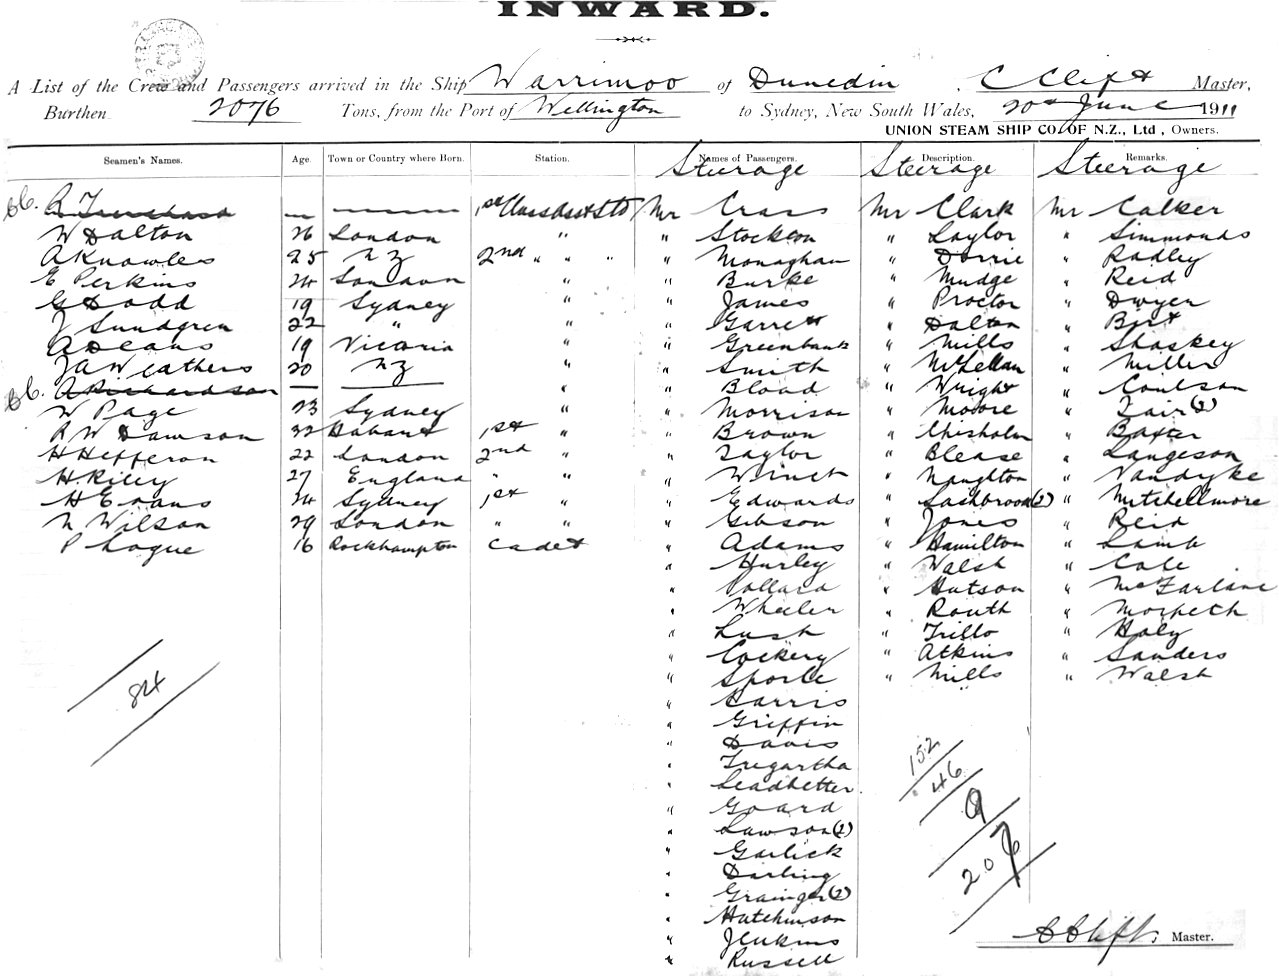 INWARD.
A List of the Crew and Passengers arrived in the Ship Warrimoo of Dunedin C Clift Master,
Burthen 2076 Tons, from the Port of Wellington to Sydney, New South Wales, 20th June 1911
UNION STEAM SHIP CO. OF N.Z., Ltd, Owners.
Seamen's Names. Age. Town or Country where Born. Station. Names of Passengers. Description. Remarks.
Steerage Steerage Steerage
1st Class Asst Std Mr Crass Mr Clark Mr Calker
W Dalton 26 London " " Stockton " Saylor " Simmonds
A Knowles 25 NZ 2nd " " " " Monaghan " Dorrie " Radley
E Perkins 24 London " " Burke " Mudge " Reid
G Dodd 19 Sydney " " James " Proctor " Dwyer
J Sundgren 22 " " " Garrett " Dalton " Birt
A Deans 19 Victoria " " Greenbank " Mills " Shaskey
JA Weathers 20 NZ " " Smith " McLellan " Miller
A Richardson — " " Blood " Wright " Coulson
W Page 23 Sydney " " Morrison " Moore " Tair (2)
R W Dawson 32 Habant 1st " " Brown " Chisholm " Baxter
H Hefferon 22 London 2nd " " Taylor " Blease " Langeson
H. Riley 27 England " " " " Naughton " Vandyke
H Evans 24 Sydney 1st " " Edwards " Lashbrook (2) " Mitchellmore
N Wilson 29 London " " " Gibson " Jones " Reid
P Logue 16 Rockhampton Cadet " Adams " Hamilton " Lamb
" Hurley " Walsh " Cole
" Pollard " Hutson " McFarlane
" Wheeler " Routh " Morpeth
" Lush " Trillo " Holy
" Cockery " Atkins " Sanders
" Sporle " Mills " Walsh
" Harris
" Griffin
" Davis
" Tregartha
" Leadbetter
" Goard
" Lawson (2)
" Garlick
" Darling
" Grainger (2)
" Hutchinson
" Jenkins
" Russell
84
152
46
9
207
C Clift. Master.